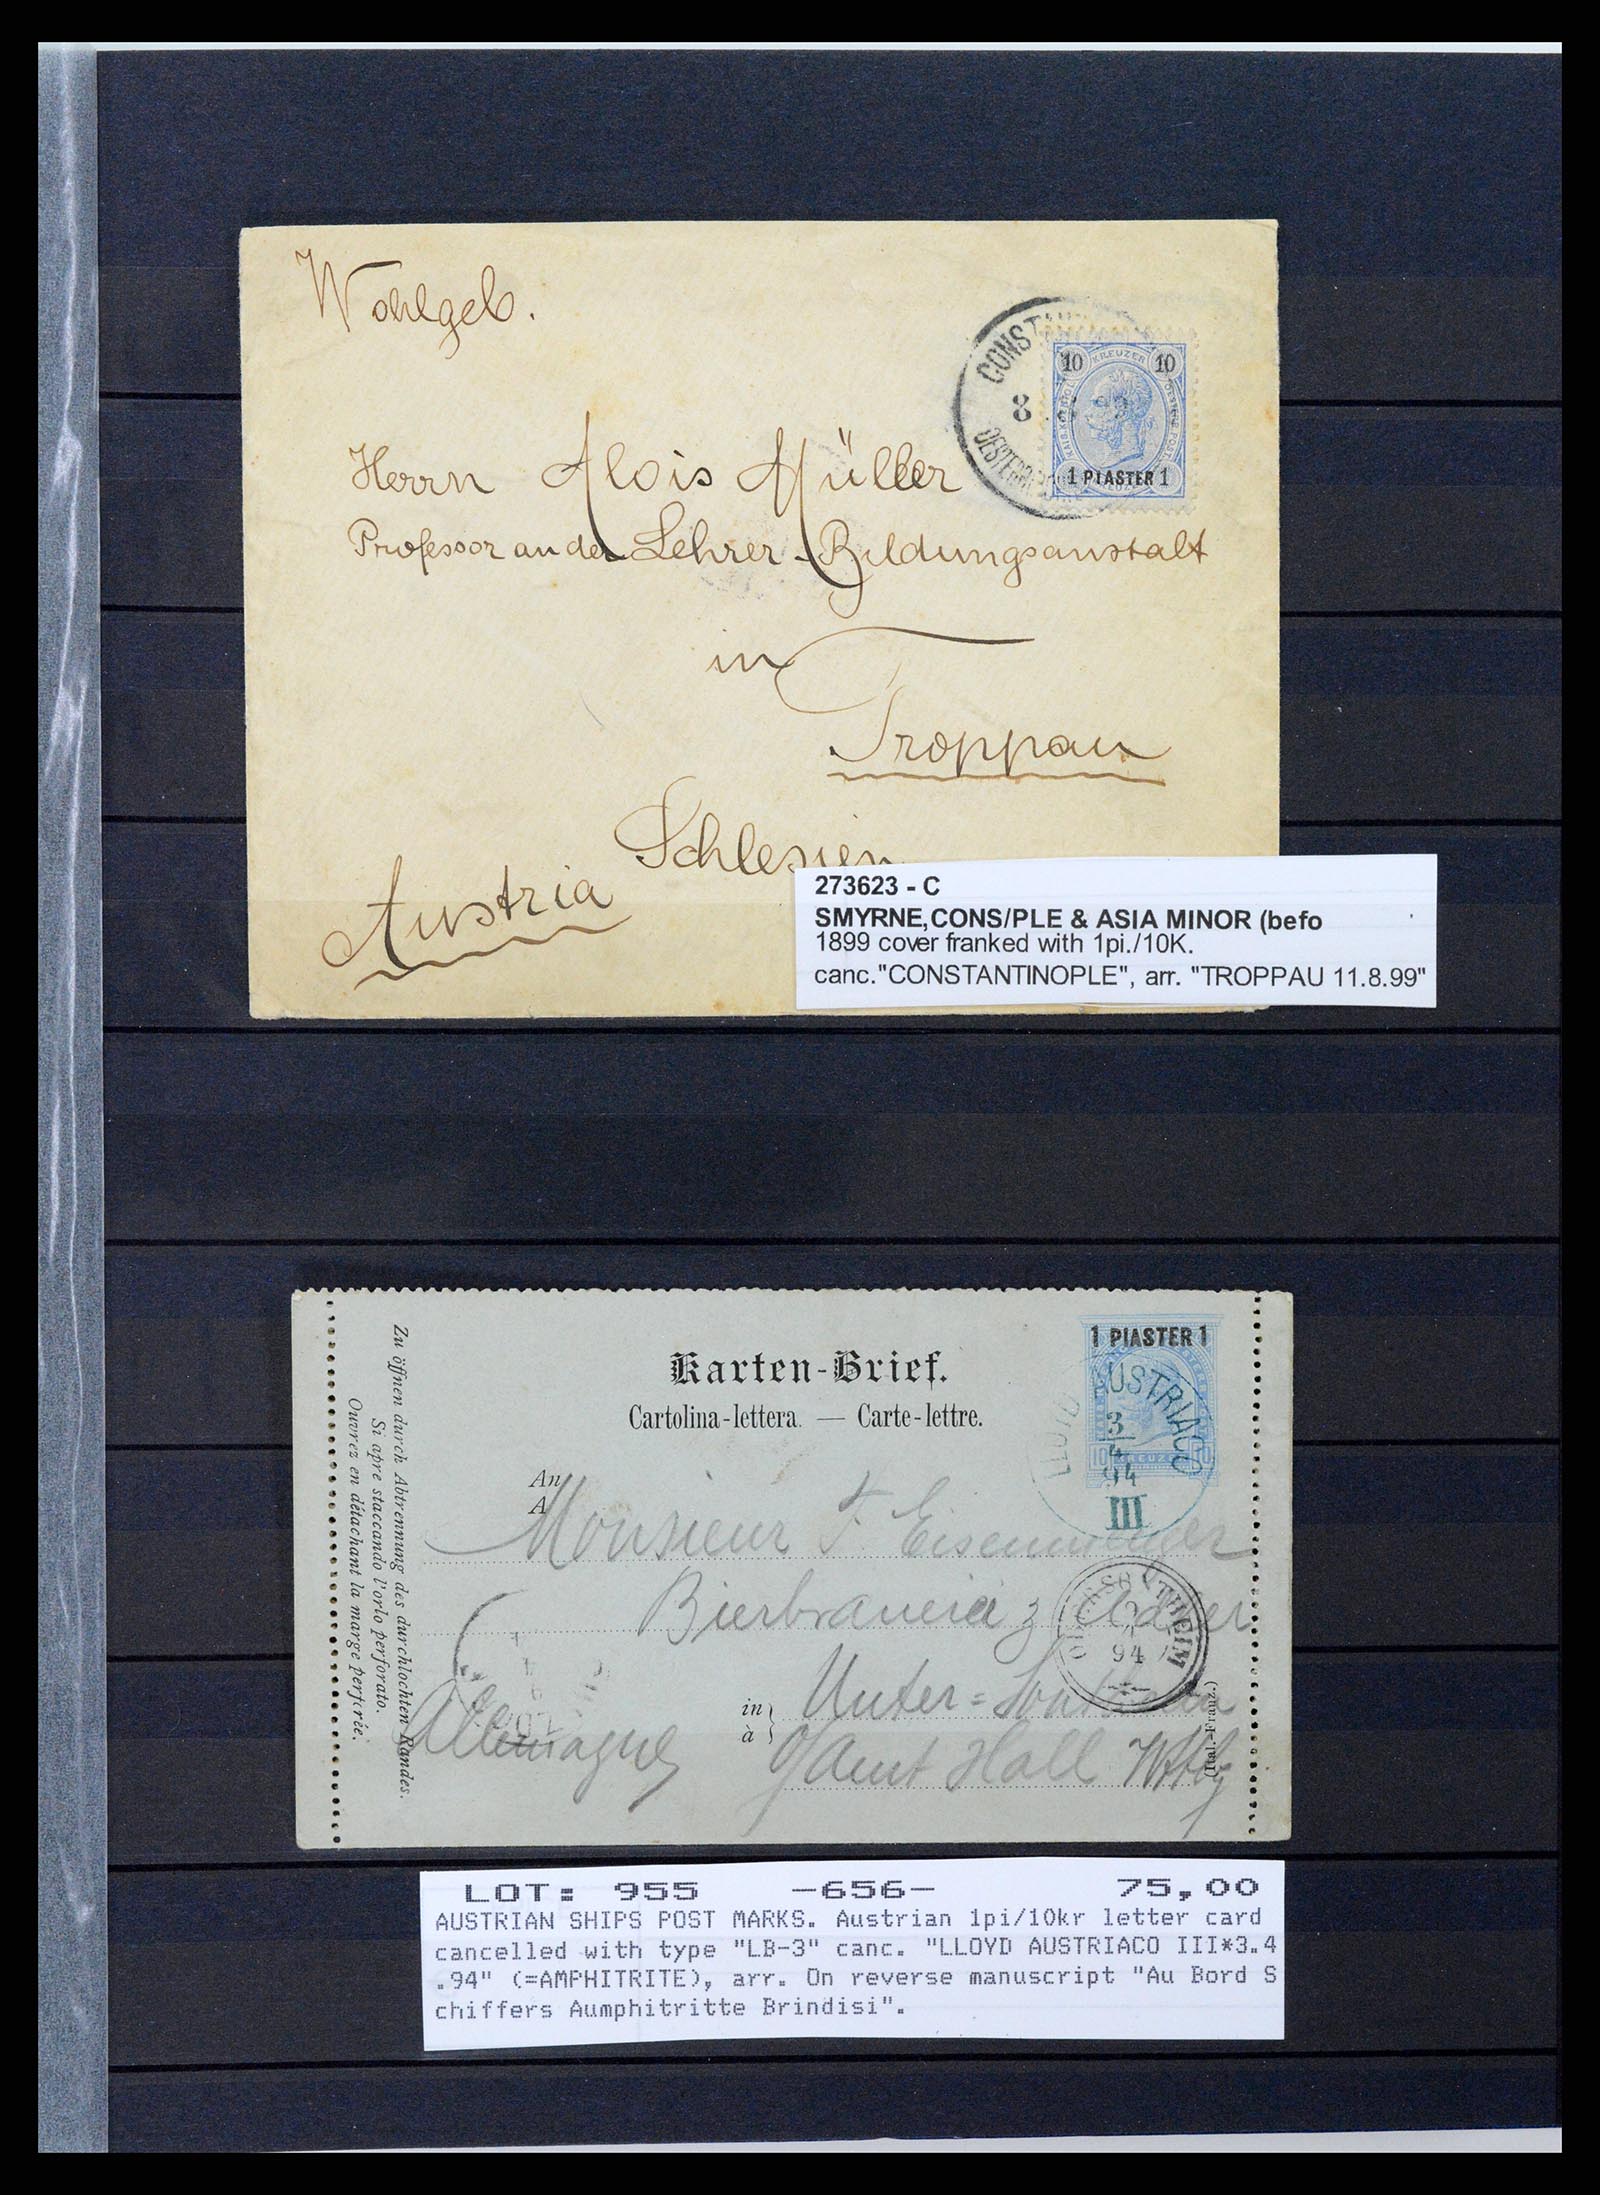 Wohlgeb.
CONST
8
OESTERR
10 KREUZER 10
1 PIASTER 1
Herrn Alois Müller
Professor an der Lehrer-Bildungsanstalt
in
Troppau
Schlesien
Austria
273623 - C
SMYRNE,CONS/PLE & ASIA MINOR (befo
1899 cover franked with 1pi./10K.
canc."CONSTANTINOPLE", arr. "TROPPAU 11.8.99"
Zu öffnen durch Abtrennung des durchlochten Randes.
Si apre staccando l'orlo perforato.
Ouvrez en détachant la marge perforée.
Karten-Brief.
Cartolina-lettera. — Carte-lettre.
1 PIASTER 1
LLOYD AUSTRIACO
3
4
94
III
10 KREUZER 10
An
A
Monsieur
Bierbrauerei z Adler
94
in
à
Unter=
O/Amt Hall
Allemagne
(Ital.-Franz.)
LOT: 955 -656- 75,00
AUSTRIAN SHIPS POST MARKS. Austrian 1pi/10kr letter card
cancelled with type "LB-3" canc. "LLOYD AUSTRIACO III*3.4
.94" (=AMPHITRITE), arr. On reverse manuscript "Au Bord S
chiffers Aumphitritte Brindisi".